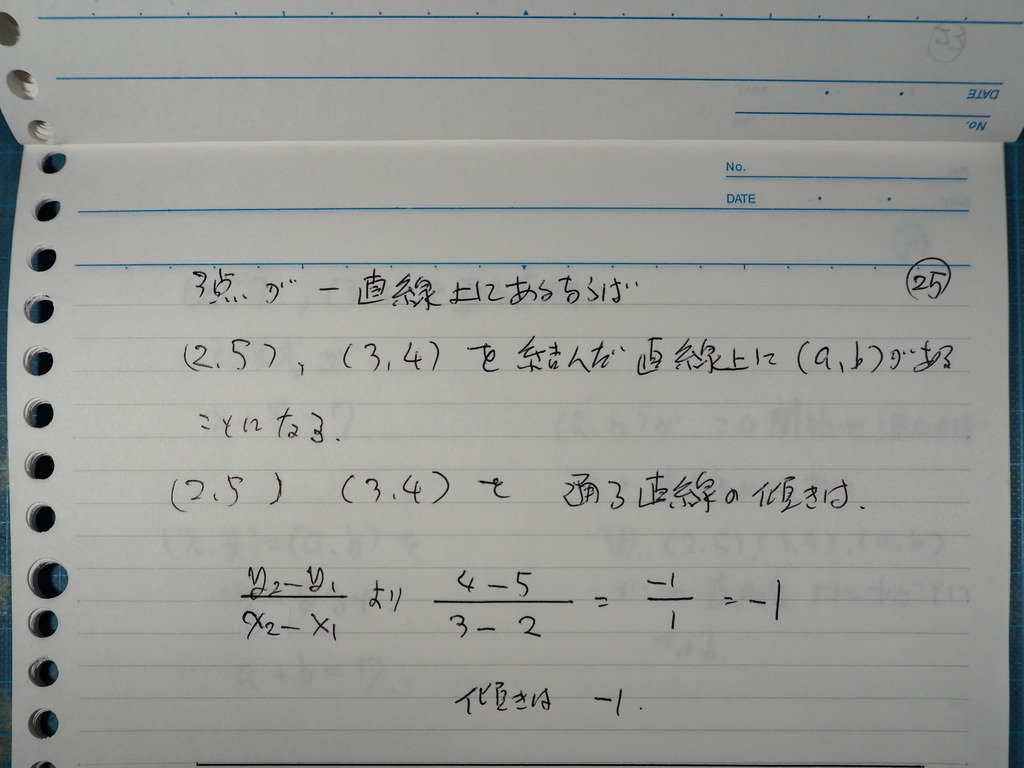 No.
DATE
No.
DATE
25
3点が一直線上にあるならば
(2.5), (3,4) を結んだ直線上に (a,b)がある
ことになる.
(2.5) (3.4)を 通る直線の傾きは.
y₂-y₁/x₂-x₁ より 4-5/3-2 = -1/1 = -1
傾きは -1.